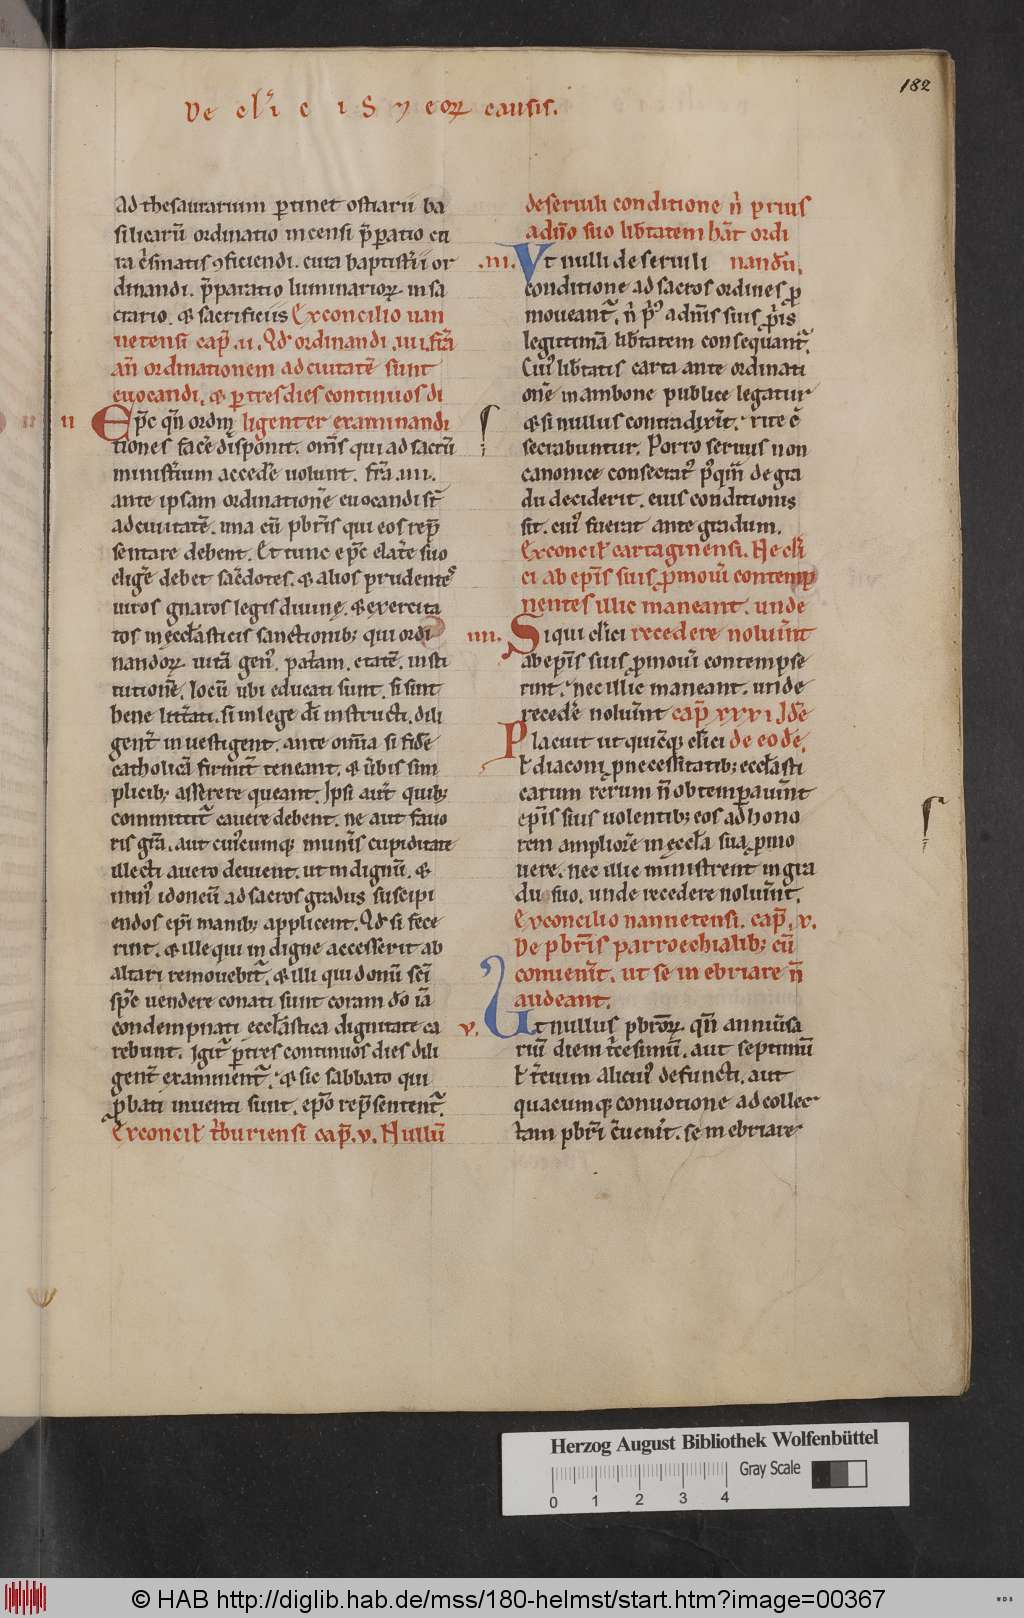 182
De cl'icis ⁊ eoꝝ causis.
Ad thesaurarium p̲tinet ostiarii ba
silicarū ordinatio incensi p̄paratio cu
ra c̄smatis ꝯficiendi. cura baptisterii or
dinandi. p̄paratio luminarioꝝ in sa
crario. & sacrificiis Ex concilio nan
netensi cap̄. ii. Qd' ordinandi .iiii. fr̄a
an̄ ordinationem ad ciuitatē sunt
euocandi. & p̲ tres dies continuos di
ii Ep̄c qn̄ ordin̄ ligenter examinandi
tiones facē disponit. om̄s qui ad sacrū
ministerium accedē uolunt. fr̄a .iiii.
ante ipsam ordinationē euocandi st̄
ad ciuitatē. una cū pb̄ris qui eos rep̄
sentare debent. Et tunc ep̄c e latere suo
eligē debet sacerdotes. & alios prudentes
uiros gnaros legis diuinę. & exercita
tos in ęccl'asticis sanctionib; qui ordi
nandoꝝ uitā gen'. patriam. etatē. insti
tutionē. locū ubi educati sunt. si sint
bene litt̄ati. si in lege dn̄i instructi. dili
gent̄ inuestigent. ante omnia si fidē
catholicā firmit̄ teneant. & u̇bis sim
plicib; asserere queant. Ipsi aut̄ quib;
committit̄ cauere debent. ne aut fauo
ris gr̄a. aut cui'cumq; munis̄ cupiditate
illecti a uero deuient. ut indignū. &
min' idoneū ad sacros gradus suscipi
endos ep̄i manib; applicent. Qd' si fece
rint. & ille qui indigne accesserit ab
altari remouebit̄. & illi qui donū sc̄i
sp̄c uendere conati sunt coram do iā
condempnati ecclastica dignitate ca
rebunt. Igit̄ p̲ tres continuos dies dili
gent̄ examinent̄. & sic sabbato qui
probati inuenti sunt. ep̄o rep̄sentent̄.
Ex concil' t̄buriensi cap̄. v. Nullū
de seruili conditione n̄ prius
a dn̄o suo lib̄tatem hāt ordi
.iii. Vt nulli de seruili nandū.
conditione ad sacros ordines p̲
moueant̄. n̄ p̄' a dn̄is suis p̄is
legitimā lib̄tatem consequant̄.
Cui' lib̄tatis carta ante ordinati
onē in ambone publice legatur
& si nullus contradixit. rite c̄
secrabuntur. Porro seruus non
canonice consecrat' p'qm̄ de gra
du deciderit. eius conditionis
sit. cui' fuerat ante gradum.
Ex concil' cartaginensi. Ne cl'i
ci ab ep̄is suis promoui contemp
nentes illic maneant. unde
iiii. Si qui cl'ici recedere noluint
ab ep̄is suis promoui contempse
rint. nec illic maneant. unde
recedē noluint cap̄ xxxi Idē
Placuit ut quicq; cl'ici de eodē.
l' diaconi p necessitatib; eccl'asti
carum rerum n̄ obtemp̲auint
ep̄is suis uolentib; eos ad hono
rem ampliorē in ęccl'a sua promo
uere. nec illic ministrent in gra
du suo. unde recedere noluint.
Ex concilio nannetensi. cap̄. x.
De pb̄ris parroechialib; cū
conuenit. ut se inebriare n̄
audeant.
v. Vt nullus pb̄roꝝ. qn̄ anniūsa
riū diem t̄cesimū. aut septimū
l' t̄tium alicui' defuncti. aut
quacumq; conuotione ad collec
tam pb̄ri c̄uenit. se inebriare
Herzog August Bibliothek Wolfenbüttel
Gray Scale
0 1 2 3 4
© HAB http://diglib.hab.de/mss/180-helmst/start.htm?image=00367